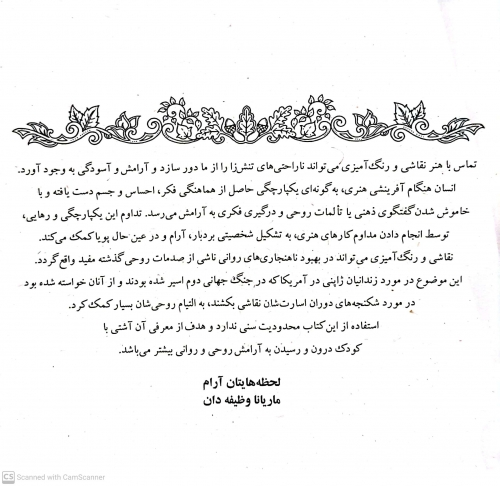 تماس با هنر نقاشی و رنگ‌آمیزی می‌تواند ناراحتی‌های تنش‌زا را از ما دور سازد و آرامش و آسودگی به وجود آورد.
انسان هنگام آفرینشی هنری، به‌گونه‌ای یکپارچگی حاصل از هماهنگی فکر، احساس و جسم دست یافته و با
خاموش شدن گفتگوی ذهنی یا تألمات روحی و درگیری فکری به آرامش می‌رسد. تداوم این یکپارچگی و رهایی،
توسط انجام دادن مداوم کارهای هنری، به تشکیل شخصیتی بردبار، آرام و در عین حال پویا کمک می‌کند.
نقاشی و رنگ‌آمیزی می‌تواند در بهبود ناهنجاری‌های روانی ناشی از صدمات روحی گذشته مفید واقع گردد.
این موضوع در مورد زندانیان ژاپنی در آمریکا که در جنگ جهانی دوم اسیر شده بودند و از آنان خواسته شده بود
در مورد شکنجه‌های دوران اسارت‌شان نقاشی بکشند، به التیام روحی‌شان بسیار کمک کرد.
استفاده از این کتاب محدودیت سنی ندارد و هدف از معرفی آن آشتی با
کودک درون و رسیدن به آرامش روحی و روانی بیشتر می‌باشد.
لحظه‌هایتان آرام
ماریانا وظیفه دان
CS Scanned with CamScanner